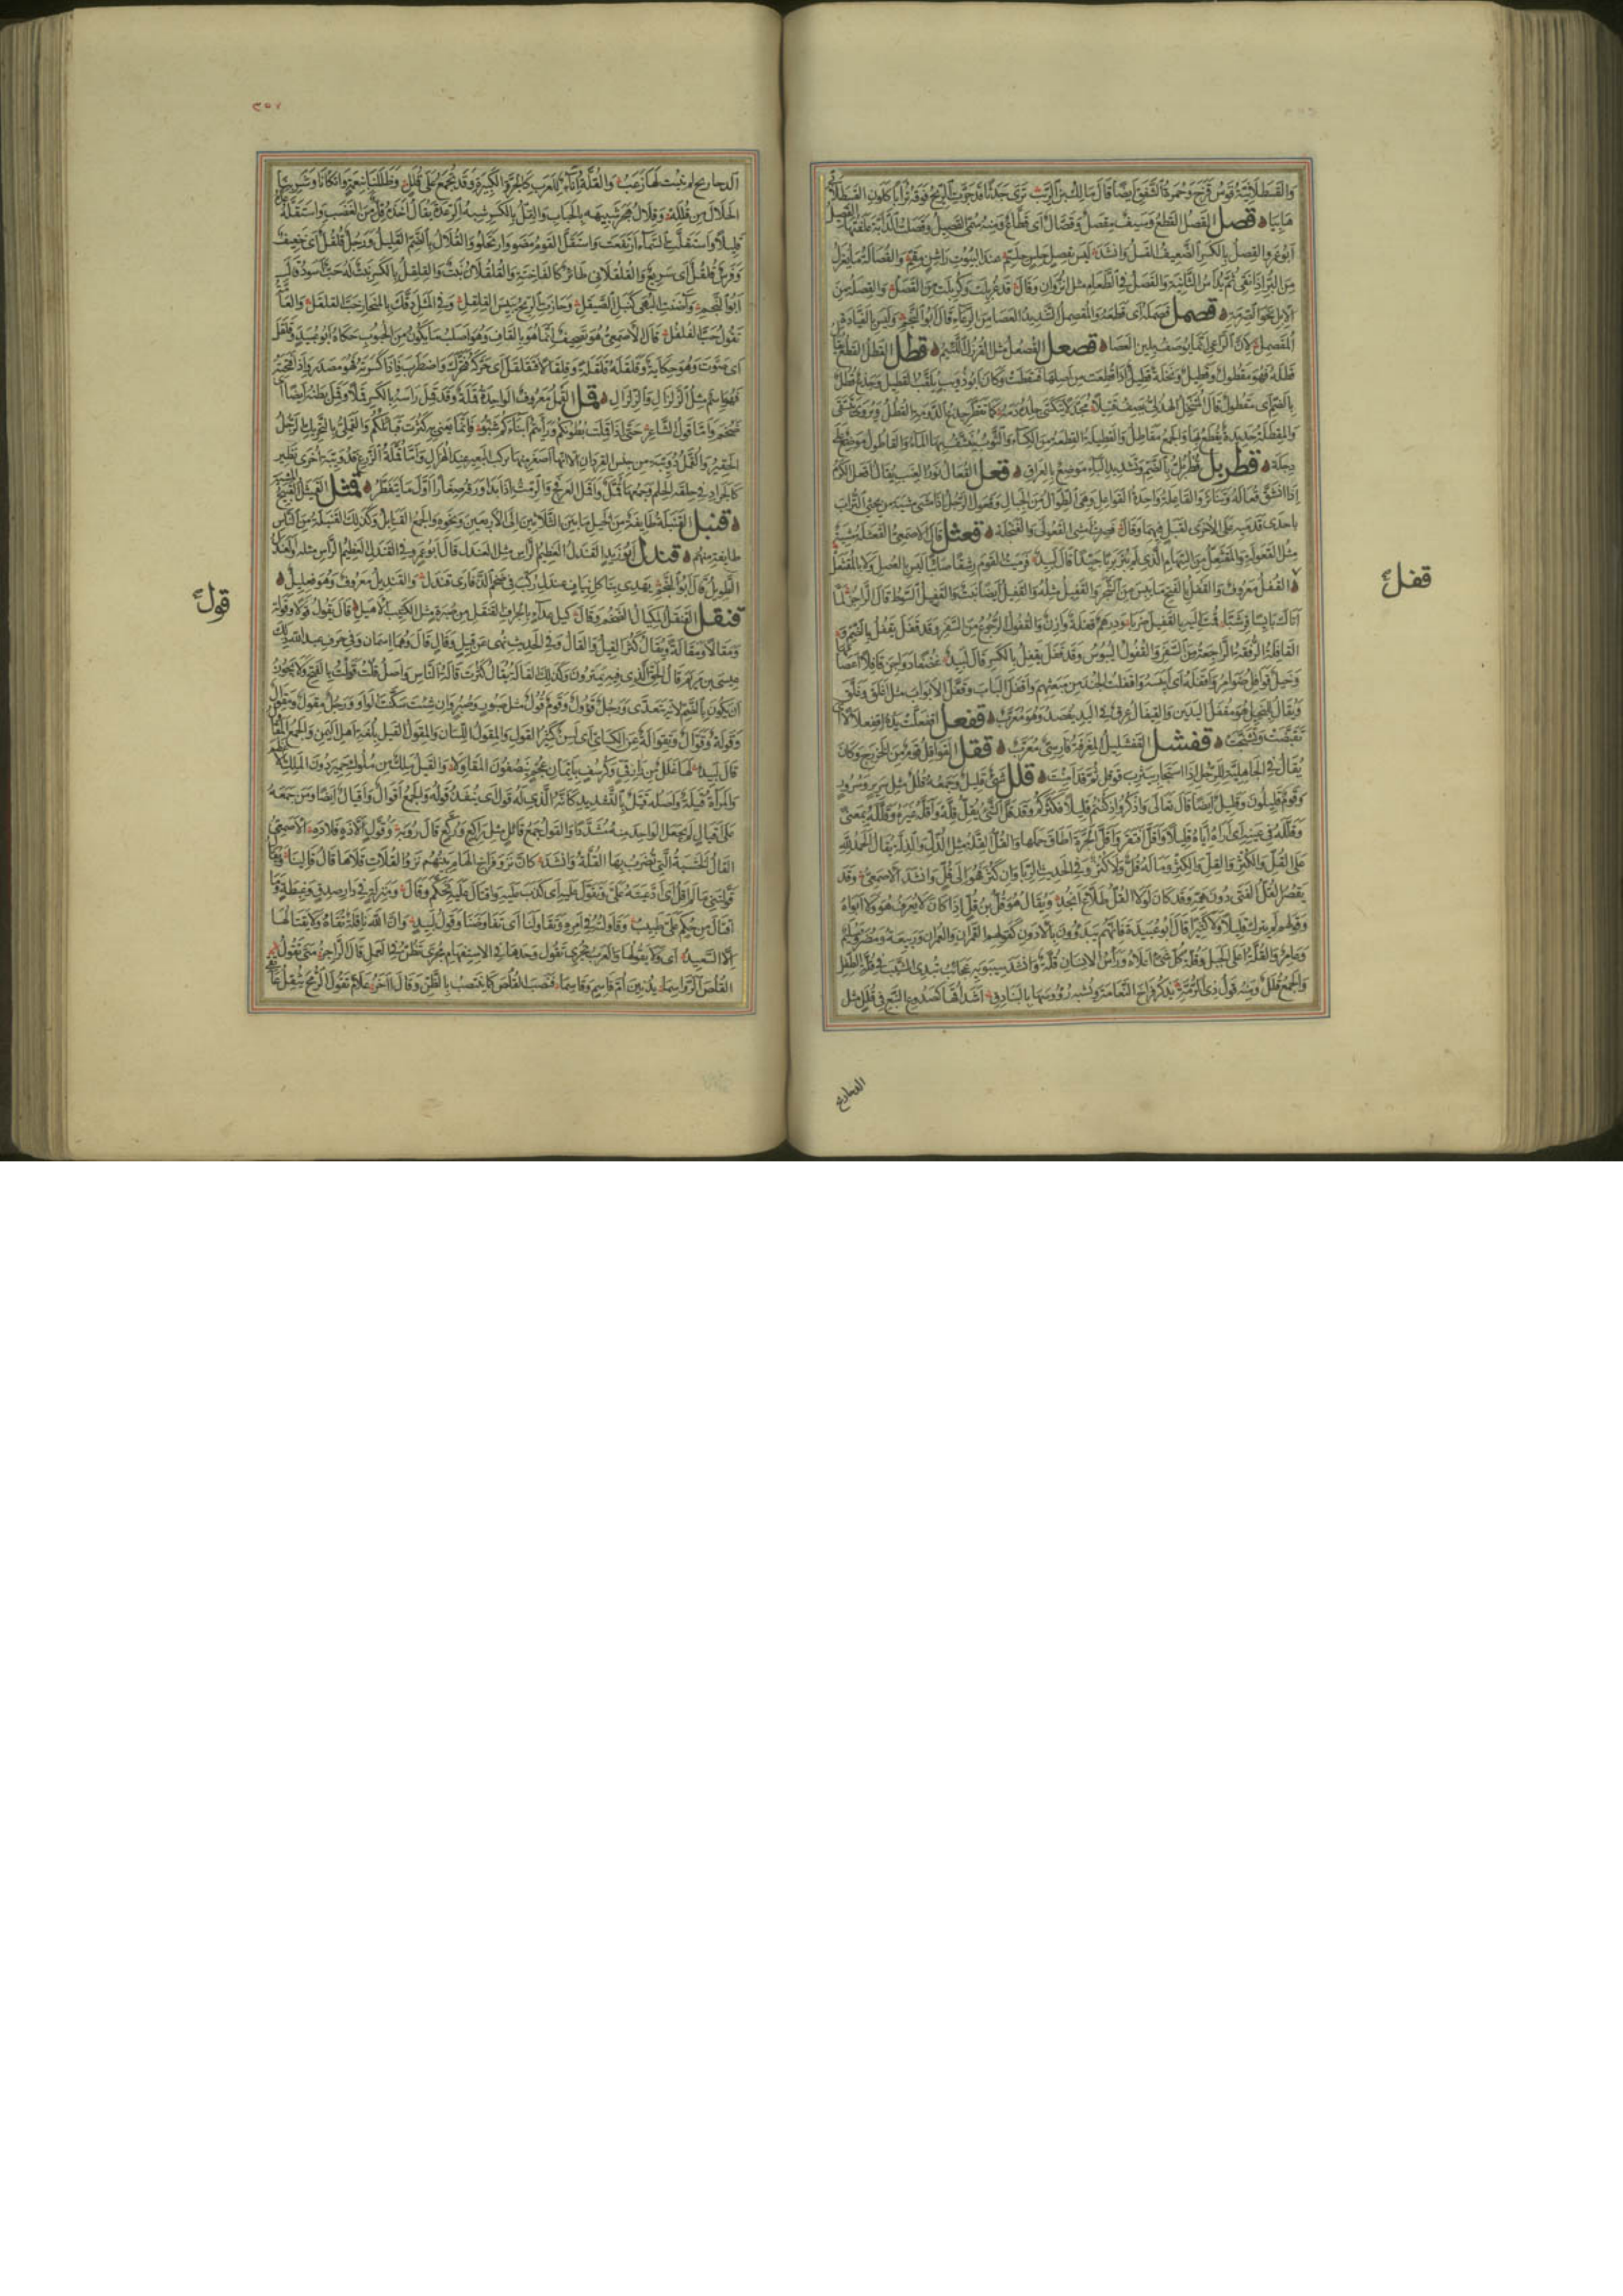 والقسطلانية قوس قزح وحمرة الشفق ايضا قال مالك بن الريب ترى جدثا قد جرت الريح فوقه ترابا كلون القسطلاني
هابيا قصل القصل القطع وسيف مقصل وقصال اى قطاع ومنه سمى القصيل وقصلت الدابة علفتها القصيل
ابو عمرو القصل بالكسر الضعيف الفسل وانشد ليس بقصل حلس حلسم عند البيوت راشن مقم والقصالة ما يعزل
من البر اذا نقى ثم يداس الثانية والقصل فى الطعام مثل الزؤان وقال قد غربلت وكربلت من القصل والقصلة من
الابل نحو الصرمة قصمل قصمله اى قطعه
قصعل القصعل مثل اللئيم قطل القطل القطع
قطله فهو مقطول وقطيل ونخلة قطيل اذا قطعت من اصلها فسقطت وكان ابو ذويب يلقب القطيل وجذع قطل
بالضم اى مقطول قال المتنخل الهذلى يصف قتيلا مجدلا يتكسى جلده دمه كما تقطر جذع الدومة القطل
والمقطلة حديدة يقطع بها والجمع مقاطل والقطيلة القطعة من الكساء والثوب ينشف بها الماء والقاطول موضع على
دجلة قطربل قطربل بالضم وتشديد الباء موضع بالعراق قعل القعال نور العنب يقال اقعل الكرم
اذا انشق قعاله وتناثر والقاعلة واحدة القواعل وهى الطوال من الجبال
قعثل قال الاصمعى القعثلة مشية
مثل القعولة والمقثعل من السهام الذى لم يبر بريا جيدا قال لبيد فرميت القوم رشقا صائبا ليس بالعصل ولا بالمقثعل
القفل معروف والقفل بالفتح ما يبس من الشجر والقفيل مثله والقفيل ايضا نبت والقفيل السوط قال الراجز لما
اتاك يابسا قرشبا قمت اليه بالقفيل ضربا ودرهم قفلة وازن والقفول الرجوع من السفر وقد قفل يقفل بالضم ومنه
القافلة الرفقة الراجعة من السفر والقفول اليبوس وقد قفل يقفل بالكسر قال لبيد غضفا دواجن قافلا اعصامها
وخيل قوافل ضوامر واقفله اى ايبسه واقفلت الجند من مبعثهم واقفل الباب وقفل الابواب مثل اغلق وغلق
ويقال للبخيل هو مقفل اليدين والقيفال عرق فى اليد يفصد وهو معرب قفعل اقفعلت يده اقفعلالا اى
تقبضت وتشنجت قفشل القفشليل المغرفة فارسى معرب ققل القواقل قوم من الخزرج وكان
يقال فى الجاهلية للرجل اذا استجار بيثرب قوقل ثم قد امنت قلل شىء قليل وجمعه قلل مثل سرير وسرر
وقوم قليلون وقليل ايضا قال تعالى واذكروا اذ كنتم قليلا فكثركم وقد قل الشىء يقل قلة واقله غيره وقلله بمعنى
وقلله فى عينه اى اراه اياه قليلا واقل افتقر واقل الجرة اطاق حملها والقل القلة مثل الذل والذلة يقال الحمد لله
على القل والكثر والقل والكثر وما له قل ولا كثر وفى الحديث الربا وان كثر فهو الى قل وانشد الاصمعى وقد
يقصر القل الفتى دون همه وقد كان لولا القل طلاع انجد ويقال هو قل بن قل اذا كان لا يعرف هو ولا ابوه
وقولهم لم يترك قليلا ولا كثيرا قال ابو عبيدة فانهم يبدؤون بالادون كقولهم القمران والعمران وربيعة ومضر وسليم
وعامر والقلة اعلى الجبل وقلة كل شىء اعلاه وراس الانسان قلة وانشد سيبويه عجائب تبدى الشيب فى قلة الطفل
والجمع قلل ومنه قول ذى الرمة يذكر فراخ النعامة ويشبه رؤوسها بالبنادق اشداقها كصدوع النبع فى قلل مثل
الدحاريج
قفل
٢٥٧
الدحاريج لم ينبت لها زغب والقلة اناء للعرب كالجرة الكبيرة وقد تجمع على قلل وظللنا بنعمة واتكانا وشربنا
الحلال من قلله وقلال هجر شبيهة بالحباب والقل بالكسر شبه الرعدة يقال اخذه قل من الغضب واستقله عده
قليلا واستقلت السماء ارتفعت واستقل القوم مضوا وارتحلوا والقلال بالضم القليل ورجل قلقل اى خفيف
وفرس قلقل اى سريع والقلقلانى طائر كالفاختة والقلقلان نبت والقلقل بالكسر نبت له حب اسود قال
ابو النجم وآضت البهمى كنبل الصيقل وحازت الريح يبيس القلقل وفى المثل دقك بالمنحاز حب القلقل والعامة
تقول حب الفلفل قال الاصمعى هو تصحيف انما هو بالقاف وهو اصلب ما يكون من الحبوب حكاه ابو عبيد وقلقل
اى صوت وهو حكاية وقلقله قلقلة وقلقالا فتقلقل اى حركه فتحرك واضطرب فاذا كسرته فهو مصدر واذا فتحته
فهو اسم مثل الزلزال والزلزال قمل القمل معروف الواحدة قملة وقد قمل راسه بالكسر قملا وقمل بطنه ايضا اى
ضخم واما قول الشاعر حتى اذا قملت بطونكم ورايتم ابناءكم شبوا فانما يعنى به كثرت قبائلكم والقملى بالتحريك الرجل
الحقير والقمل دويبة من جنس القردان الا انها اصغر منها تركب البعير عند الهزال واما قملة الزرع فدويبة اخرى تطير
كالجراد فى خلقة الحلم وجمعها قمل واقمل العرفج والرمث اذا بدا ورقه صغارا اول ما يتفطر قمثل القميثل القبيح المشية
قنبل القنبلة طائفة من الخيل ما بين الثلاثين الى الاربعين ونحوه والجمع القنابل وكذلك القنبلة من الناس
طائفة منهم قندل ابو زيد القندل العظيم الراس مثل العندل قال ابو عمرو القندل العظيم الراس مثله والعندل
الطويل قال ابو النجم يهدى بنا كل نياف عندل ركب فى ضخم الذفارى قندل والقنديل معروف وهو فعليل
قنقل القنقل المكيال الضخم وقال كيل عداء بالجراف القنقل من صبرة مثل الكثيب الاهيل قال يقول قولا وقولة
ومقالا ومقالة ويقال كثر القيل والقال وفى الحديث نهى عن قيل وقال وهما اسمان وفى حرف عبد الله ذلك
عيسى بن مريم قال الحق الذى فيه يمترون وكذلك القالة يقال كثرت قالة الناس واصل قلت قولت بالفتح ولا يجوز
ان يكون بالضم لانه يتعدى ورجل قؤول وقوم قول مثل صبور وصبر وان شئت سكنت الواو ورجل مقول ومقوال
وقولة وقوال وتقوالة عن الكسائى اى لسن كثير القول والمقول اللسان والمقول القيل بلغة اهل اليمن والجمع المقاول
قال لبيد لها غلل من رازقى وكرسف بايمان عجم ينصفون المقاولا والقيل ملك من ملوك حمير دون الملك الاعظم
والمراة قيلة واصله قيل بالتشديد كانه الذى له قول اى ينفذ قوله والجمع اقوال واقيال ايضا ومن جمعه
على اقيال لم يجعل الواحد منه مشددا والقول جمع قائل مثل راكع وركع قال رؤبة وقول الا ده فلا ده الاصمعى
القال الخشبة التى تضرب بها القلة وانشد كان نزو فراخ الهام بينهم نزو القلات قلاها قال قالينا
قولتنى ما لم اقل اى ادعيته على وتقول عليه اى كذب عليه واقتال عليه تحكم وقال ومنزلة فى دار صدق وغبطة وما
اقتال من حكم على طبيب وقاولته فى امره وتقاولنا اى تفاوضنا وقول لبيد وان الله نافلة تقاه ولا يقتالها
الا السعيد اى ولا يقولها والعرب تجرى تقول وحدها فى الاستفهام مجرى تظن فى العمل قال الراجز متى تقول
القلص الرواسما يدنين ام قاسم وقاسما فنصب القلص كما ينصب بالظن وقال آخر علام تقول الرمح يثقل عاتقى
قول